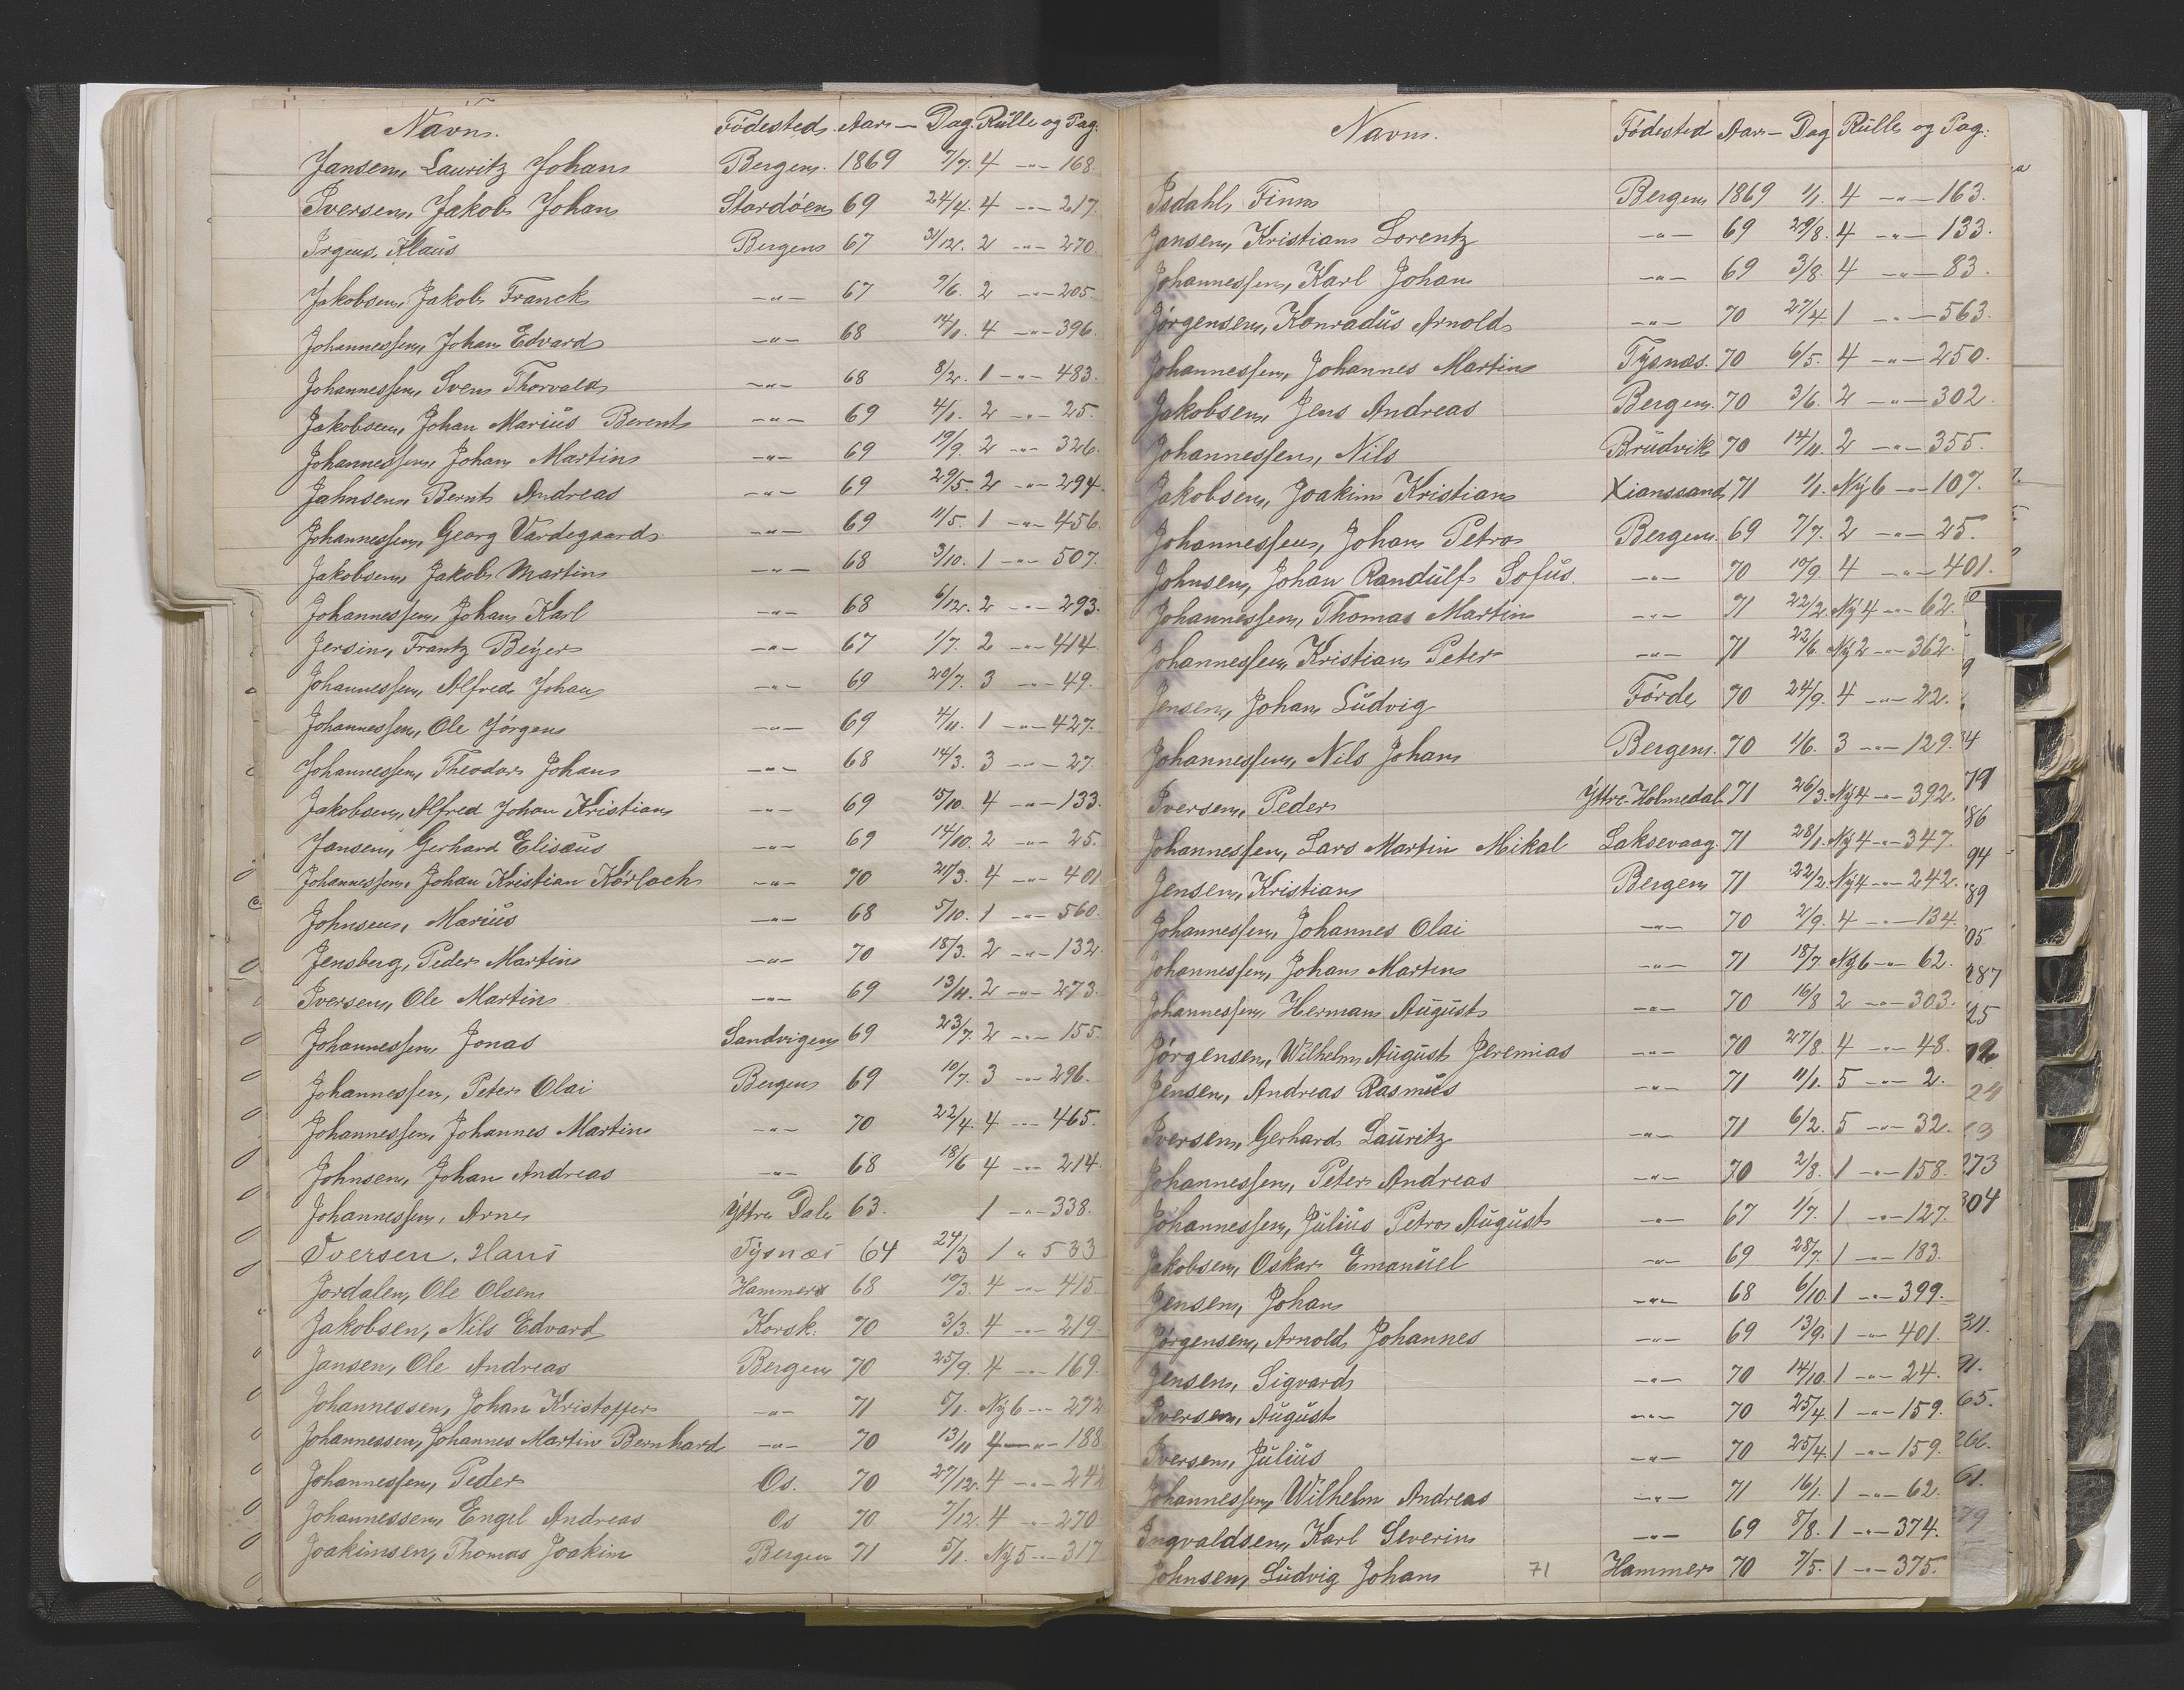 Navn. Födested. Aar — Dag. Rulle og Pag:
Jansen, Lauritz Johan Bergen. 1869 7/7. 4 —"— 168.
Iversen, Jakob Johan Stordöen 69 24/4. 4 —"— 217.
Irgens, Klaus Bergen 67 31/12. 2 —"— 270.
Jakobsen, Jakob Franck —"— 67 9/6. 2 —"— 205.
Johannessen, Johan Edvard —"— 68 14/1. 4 —"— 396.
Johannessen, Sven Thorvald —"— 68 8/2. 1 —"— 483.
Jakobsen, Johan Marius Berent —"— 69 4/1. 2 —"— 25.
Johannessen, Johan Martin —"— 69 19/9. 2 —"— 326.
Jahnsen, Bernt Andreas —"— 69 29/5. 2 —"— 294.
Johannessen, Georg Vardegaard —"— 69 11/5. 1 —"— 456.
Jakobsen, Jakob Martin —"— 68 3/10. 1 —"— 507.
Johannessen, Johan Karl —"— 68 6/12. 2 —"— 293.
Jersin, Frantz Beyer —"— 67 1/7. 2 —"— 414.
Johannessen, Alfred Johan —"— 69 20/7. 3 —"— 49.
Johannessen, Ole Jörgen —"— 69 4/11. 1 —"— 427.
Johannessen, Theodor Johan —"— 68 14/3. 3 —"— 27.
Jakobsen, Alfred Johan Kristian —"— 69 15/10. 4 —"— 133.
Jansen, Gerhard Elisæus —"— 69 14/10. 2 —"— 25.
Johannessen, Johan Kristian Körlach —"— 70 21/3. 4 —"— 401
Johnsen, Marius —"— 68 5/10. 1 —"— 560.
Jensberg, Peder Martin —"— 70 18/3. 2 —"— 132.
Iversen, Ole Martin —"— 69 13/11. 2 —"— 273.
Johannessen, Jonas Sandvigen 69 23/7. 2 —"— 155.
Johannessen, Peter Olai Bergen 69 10/7. 3 —"— 296.
Johannessen, Johannes Martin —"— 70 22/4. 4 —"— 465.
Johnsen, Johan Andreas —"— 68 18/6 4 —"— 214.
Johannessen, Arne Ÿttre Dale 63. 1 —"— 338.
Iversen, Hans Tysnæs 64 24/3 1 " 533
Jordalen, Ole Olsen Hammer 68 10/3. 4 —"— 415.
Jakobsen, Nils Edvard Korsk. 70 3/3. 4 —"— 219.
Jansen, Ole Andreas Bergen 70 25/9. 4 —"— 169.
Johannessen, Johan Kristoffer —"— 71 5/1. Ny 6 —"— 272
Johannessen, Johannes Martin Bernhard —"— 70 13/11 4 —"— 188
Johannessen, Peder Os. 70 27/12. 4 —"— 242
Johannessen, Engel Andreas Os 70 7/12. 4 —"— 270
Joakimsen, Thomas Joakim Bergen 71 5/1. Ny 5 —"— 317
Navn. Födested Aar — Dag Rulle og Pag:
Isdahl, Finn Bergen 1869 1/1. 4 —"— 163.
Jansen, Kristian Lorentz —"— 69 29/8. 4 —"— 133.
Johannessen, Karl Johan —"— 69 3/8. 4 —"— 83.
Jörgensen, Konradus Arnold —"— 70 27/4. 1 —"— 563.
Johannessen, Johannes Martin Tysnæs. 70 6/5. 4 —"— 250.
Jakobsen, Jens Andreas Bergen. 70 3/6. 2 —"— 302.
Johannessen, Nils Brudvik 70 14/11. 2 —"— 355.
Jakobsen, Joakim Kristian Xianssand 71 1/1. Ny 6 —"— 107.
Johannessen, Johan Petro Bergen. 69 7/7. 2 —"— 25.
Johnsen, Johan Randulf Sofus. —"— 70 10/9. 4 —"— 401.
Johannessen, Thomas Martin —"— 71 22/2. Ny 4 —"— 62.
Johannessen, Kristian Peter —"— 71 22/6. Ny 2 —"— 362.
Jensen, Johan Ludvig Förde 70 24/9. 4 —"— 22.
Johannessen, Nils Johan Bergen. 70 1/6. 3 —"— 129.
Iversen, Peder Ÿttre-Holmedal 71 26/3. Ny 4 —"— 392.
Johannessen, Lars Martin Mikal Laksevaag. 71 28/1. Ny 4 —"— 347.
Jensen, Kristian Bergen 71 22/2. Ny 4 —"— 242.
Johannessen, Johannes Olai —"— 70 2/9. 4 —"— 134.
Johannessen, Johan Martin —"— 71 18/7. Ny 6 —"— 62.
Johannessen, Herman August —"— 70 16/8 2 —"— 303.
Jörgensen, Wilhelm August Jeremias —"— 70 27/8. 4 —"— 48.
Jensen, Andreas Rasmus —"— 71 11/1. 5 —"— 2.
Iversen, Gerhard Lauritz —"— 71 6/2. 5 —"— 32.
Johannessen, Peter Andreas —"— 70 2/8. 1 —"— 158.
Johannessen, Julius Petro August —"— 67 1/7. 1 —"— 127.
Jakobsen, Oskar Emanuel —"— 69 28/7. 1 —"— 183.
Jensen, Johan —"— 68 6/10. 1 —"— 399.
Jörgensen, Arnold Johannes —"— 69 13/9. 1 —"— 401.
Jensen, Sigvard —"— 70 14/10. 1 —"— 24.
Iversen, August —"— 70 25/4. 1 —"— 159.
Iversen, Julius —"— 70 25/4. 1 —"— 159.
Johannessen, Wilhelm Andreas —"— 71 16/1. 1 —"— 62.
Ingvaldsen, Karl Severin —"— 69 8/8. 1 —"— 374.
Johnsen, Ludvig Johan 71 Hammer 70 7/5. 1 —"— 375.
K
79
86
94
89
05
287
25
24
273
304